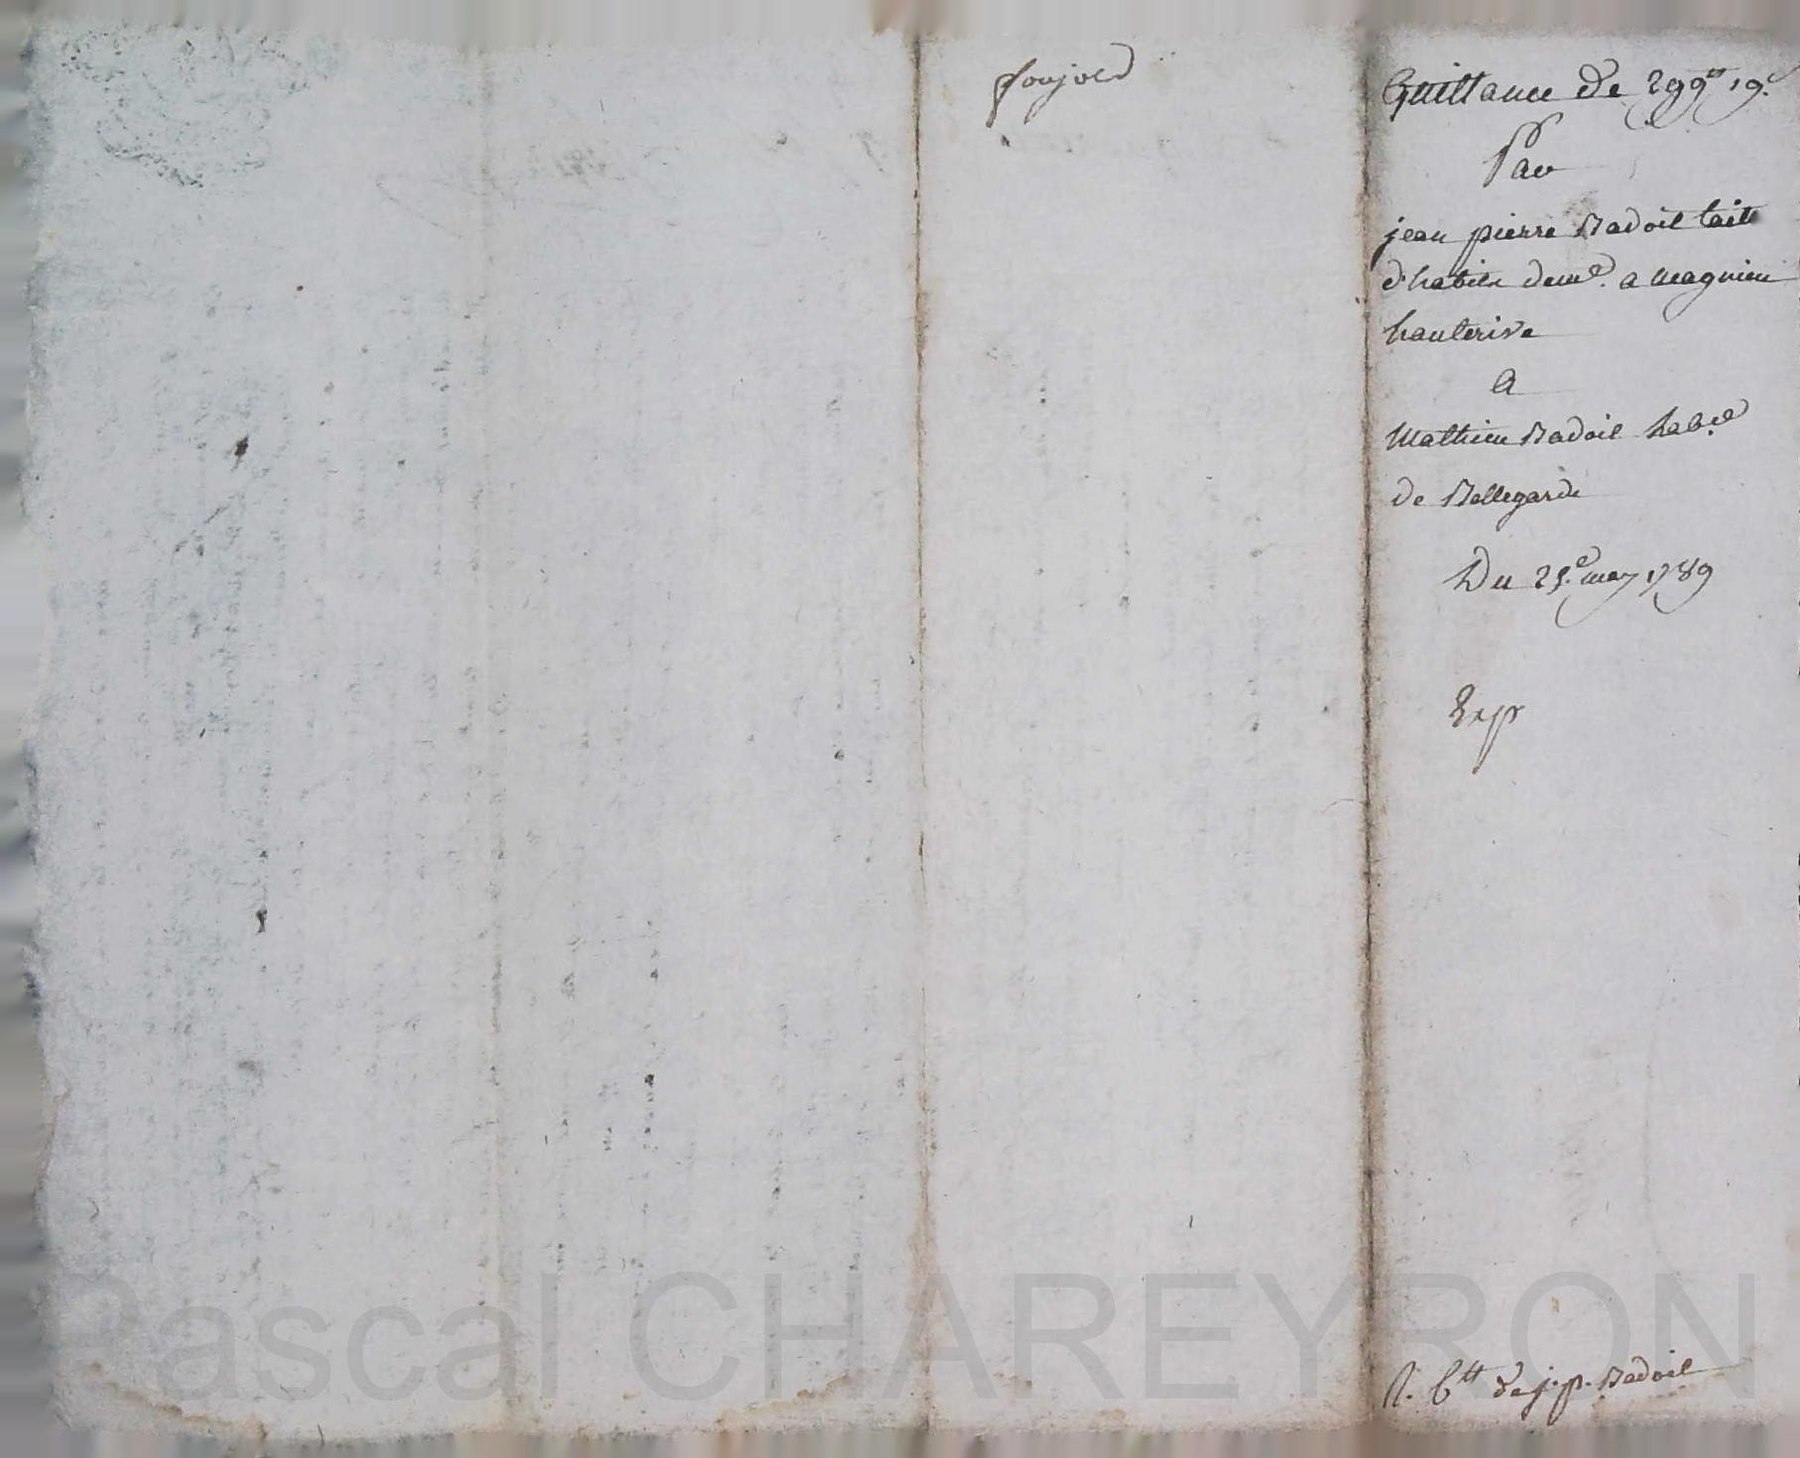 Quittance de 299ᵗᵗ 19ˢ
Par
jean pierre Badoil taill
d'habits demᵗ. a magnieu
hauterive
A
Mathieu Badoil habᵗ
de Bellegarde
Du 25.ᵉ may 1789
Exp
R. 6ᵗᵗ de j. p. Badoil
Pascal CHAREYRON